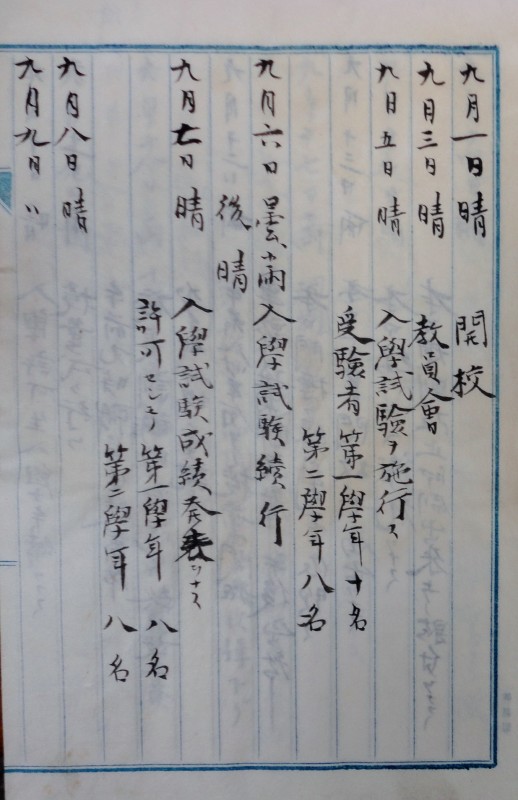 九月一日 晴 開校
九月三日 晴 教員會
九月五日 晴 入學試驗ヲ施行ス
受驗者 第一學年 十名
第二學年 八名
九月六日 曇小雨 入學試驗續行
後晴
九月七日 晴 入學試驗成績発表ヲナス
許可セシモノ 第一學年 八名
第二學年 八名
九月八日 晴
九月九日 〃